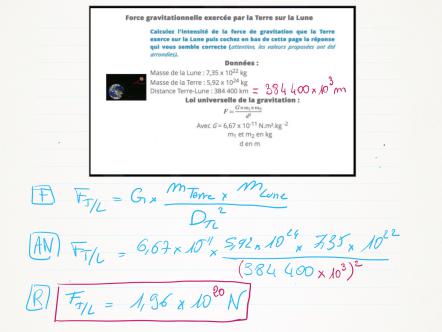 Force gravitationnelle exercée par la Terre sur la Lune
Calculez l'intensité de la force de gravitation que la Terre
exerce sur la Lune puis cochez en bas de cette page la réponse
qui vous semble correcte (attention, les valeurs proposées ont été
arrondies).
Données :
Masse de la Lune : 7,35 x 10²² kg
Masse de la Terre : 5,92 x 10²⁴ kg
Distance Terre-Lune : 384 400 km = 384 400 x 10³ m
Loi universelle de la gravitation :
F = G×m₁×m₂ / d²
Avec G = 6,67 x 10⁻¹¹ N.m².kg⁻²
m₁ et m₂ en kg
d en m
F F T/L = G x m Terre x m Lune / D TL ²
AN F T/L = 6,67 x 10⁻¹¹ x 5,92 x 10²⁴ x 7,35 x 10²² / (384 400 x 10³)²
R F T/L = 1,96 x 10²⁰ N